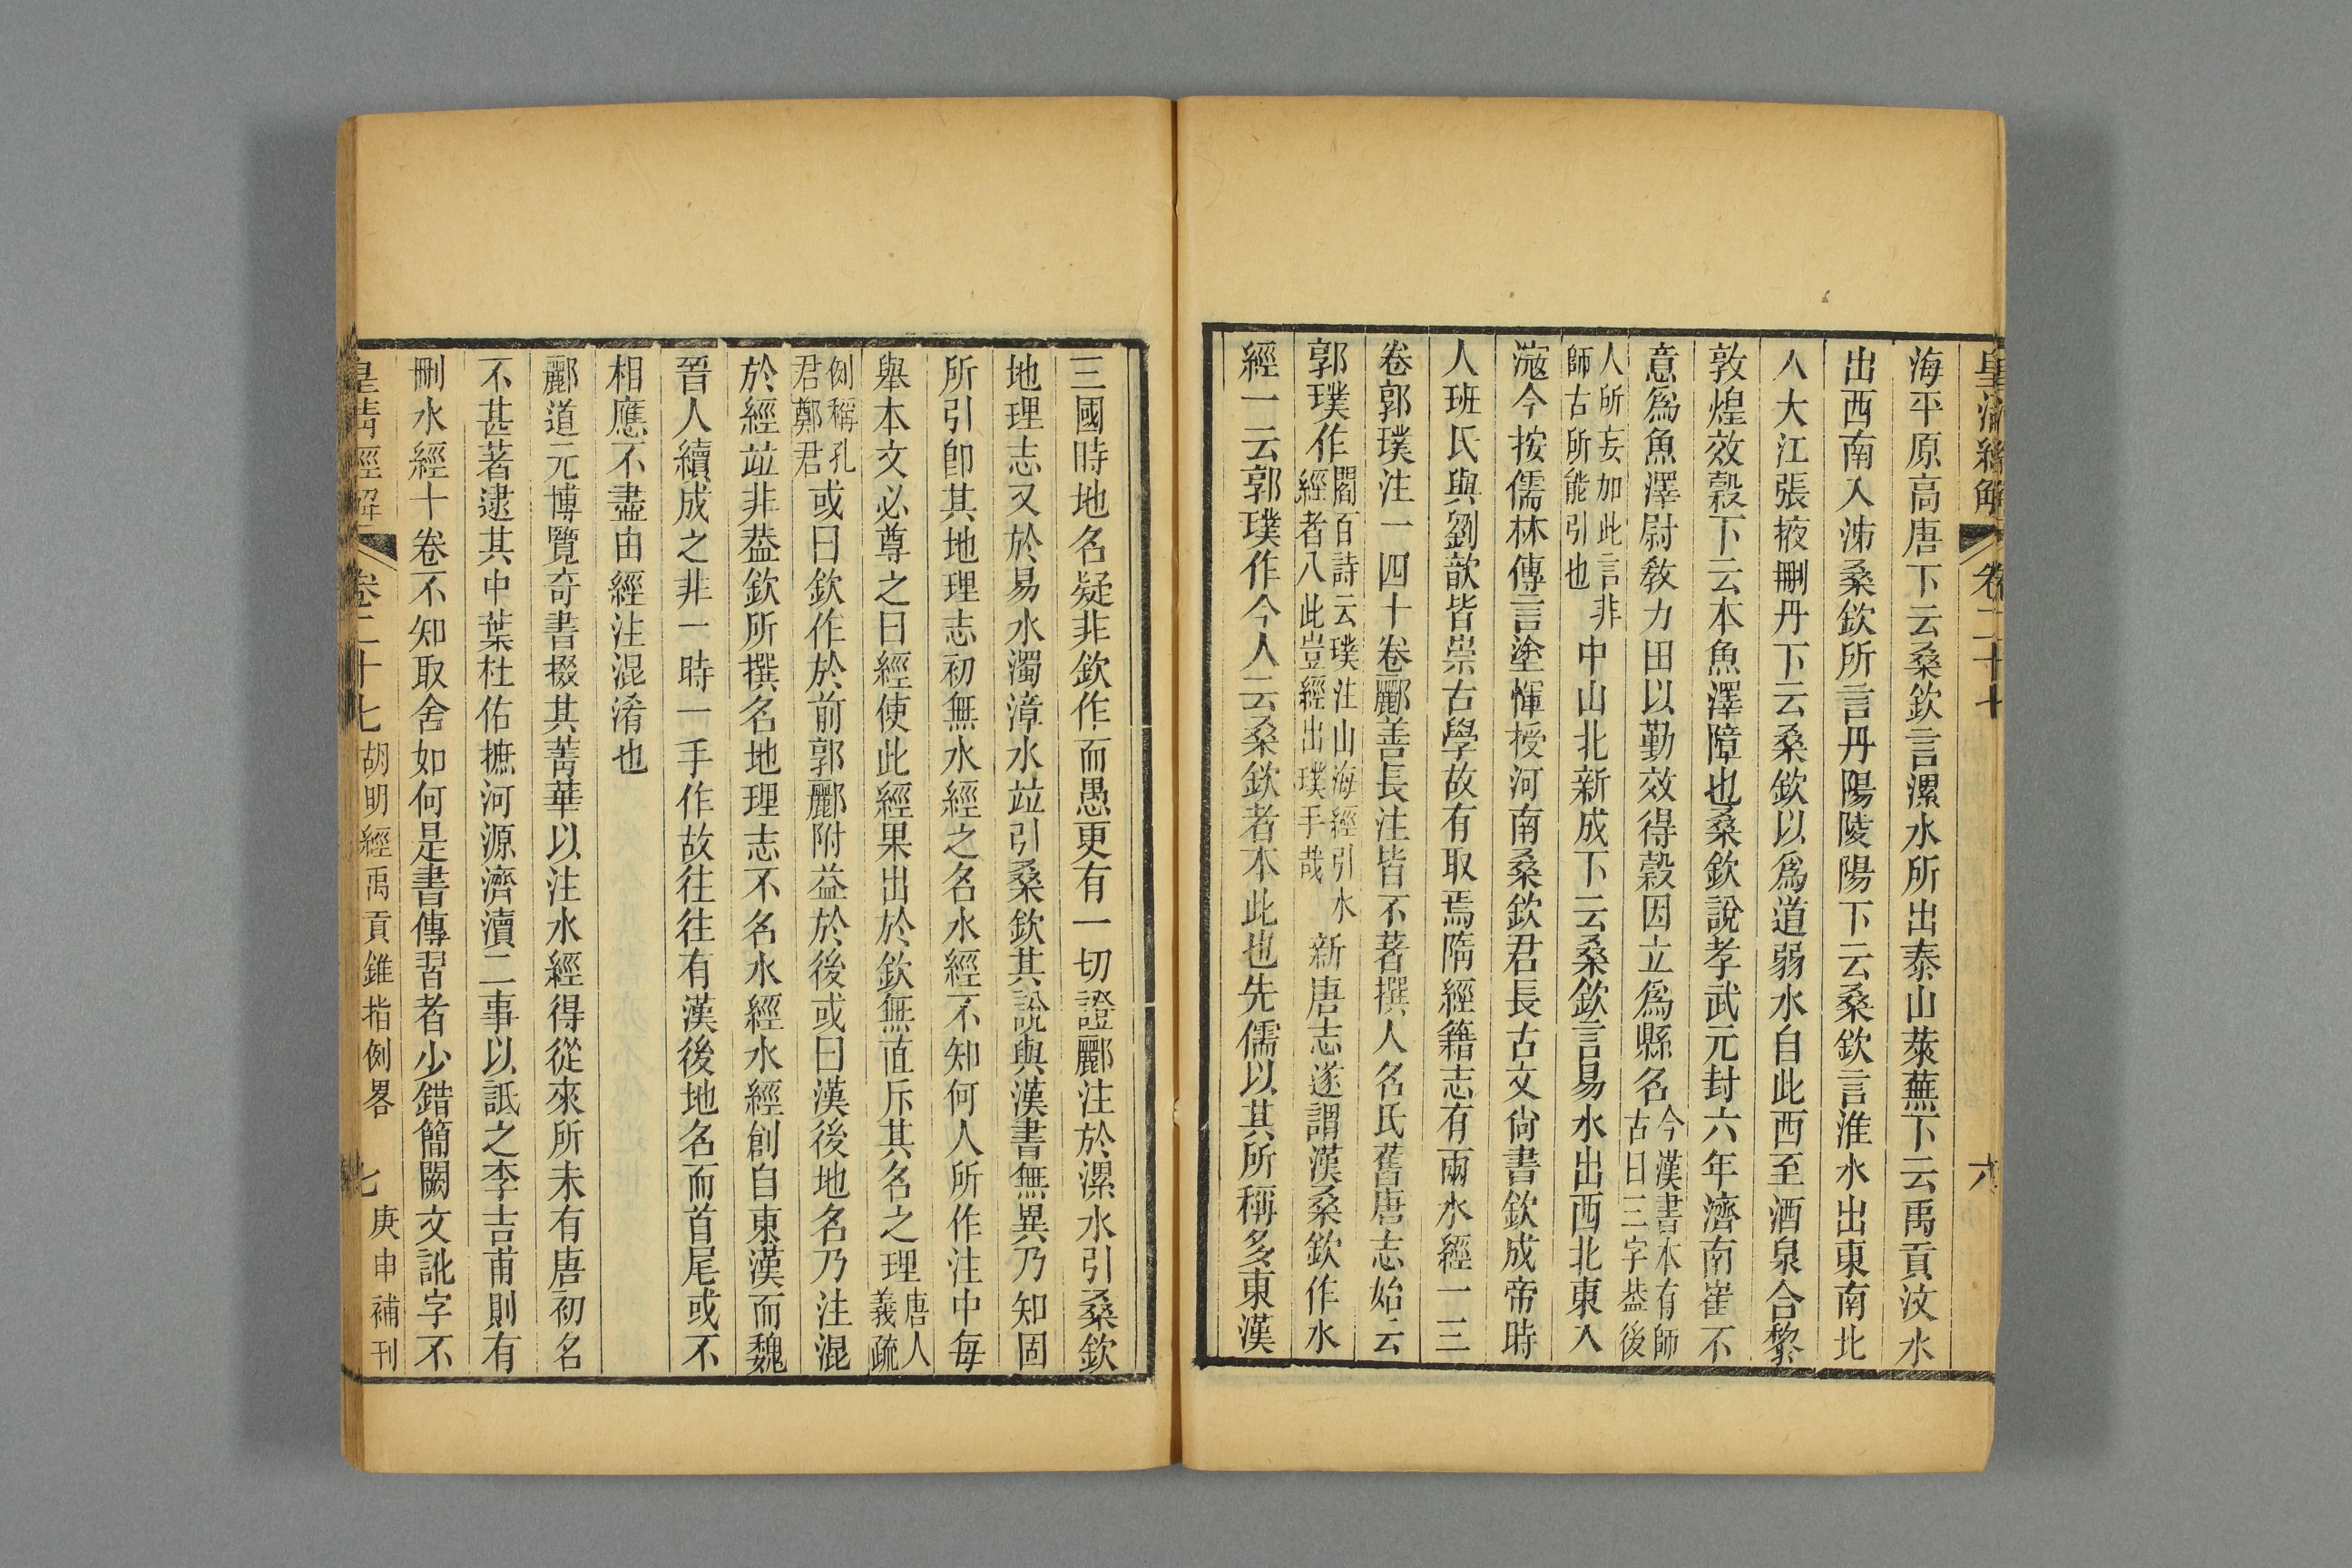 皇清經解
卷二十七
六
海平原高唐下云桑欽言漯水所出泰山萊蕪下云禹貢汶水
出西南入泲桑欽所言丹陽陵陽下云桑欽言淮水出東南北
入大江張掖刪丹下云桑欽以爲道弱水自此西至酒泉合黎
敦煌效穀下云本魚澤障也桑欽說孝武元封六年濟南崔不
意爲魚澤尉敎力田以勤效得穀因立爲縣名今漢書本有師古曰三字葢後
人所妄加此言非師古所能引也中山北新成下云桑欽言易水出西北東入
滱今按儒林傳言塗惲授河南桑欽君長古文尙書欽成帝時
人班氏與劉歆皆崇古學故有取焉隋經籍志有兩水經一三
卷郭璞注一四十卷酈善長注皆不著撰人名氏舊唐志始云
郭璞作閻百詩云璞注山海經引水經者八此豈經出璞手哉新唐志遂謂漢桑欽作水
經一云郭璞作今人云桑欽者本此也先儒以其所稱多東漢
三國時地名疑非欽作而愚更有一切證酈注於漯水引桑欽
地理志又於易水濁漳水竝引桑欽其說與漢書無異乃知固
所引卽其地理志初無水經之名水經不知何人所作注中每
舉本文必尊之曰經使此經果出於欽無直斥其名之理唐人義疏
例稱孔君鄭君或曰欽作於前郭酈附益於後或曰漢後地名乃注混
於經竝非葢欽所撰名地理志不名水經水經創自東漢而魏
晉人續成之非一時一手作故往往有漢後地名而首尾或不
相應不盡由經注混淆也
酈道元博覽奇書掇其菁華以注水經得從來所未有唐初名
不甚著逮其中葉杜佑摭河源濟瀆二事以詆之李吉甫則有
刪水經十卷不知取舍如何是書傳習者少錯簡闕文訛字不
皇淸經解
卷二十七
胡明經禹貢錐指例畧
七
庚申補刊